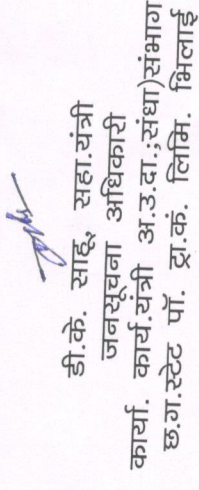 डी.के. साहू, सहा.यंत्री
जनसूचना अधिकारी
कार्या. कार्य.यंत्री अ.उ.दा.;संधा)संभाग
छ.ग.स्टेट पॉ. ट्रा.कं. लिमि. भिलाई